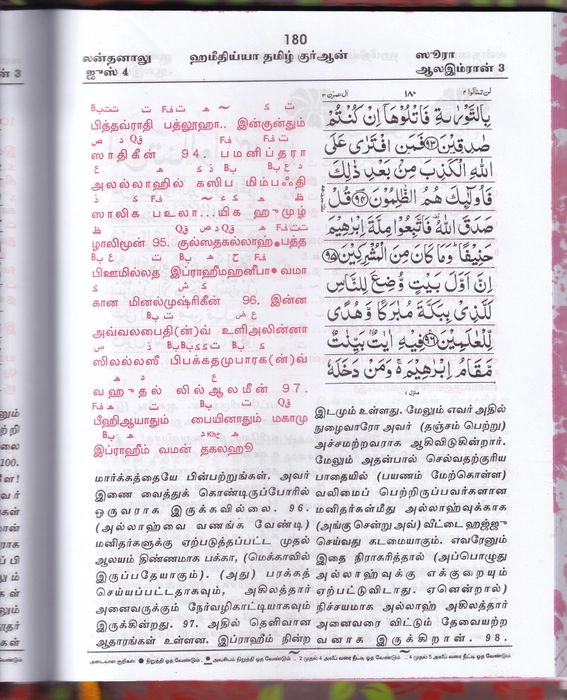 180
லன்தனாலு
ஜுஸ் 4
ஹமீதிய்யா தமிழ் குர்ஆன்
ஸூரா
ஆலஇம்ரான் 3
ال عمرٰن ٣
١٨٠
لن تنالوا ٤
பித்தவ்ராதி பத்லூஹா.. இன்குன்தும்
ஸாதிகீன் 94. பமனிப்தரா
அலல்லாஹில் கஸிப மிம்பஃதி
ஸாலிக பஉலா...யிக ஹுமுழ்
ழாலிமூன் 95. குல்ஸதகல்லாஹ் பத்த
பிஊமில்லத இப்ராஹீமஹனீபா வமா
கான மினல்முஷ்ரிகீன் 96. இன்ன
அவ்வலபைதி(ன்)வ் உளிஅலின்னா
ஸிலல்லஸீ பிபக்கதமுபாரக(ன்)வ்
வஹுதல் லில்ஆலமீன் 97.
பீஹிஆயாதும் பையினாதும் மகாமு
இப்ராஹீம் வமன் தகலஹூ
بِالتَّوْرٰىةِ فَاتْلُوْهَاۤ اِنْ كُنْتُمْ
صٰدِقِيْنَ ﴿٩٣﴾ فَمَنِ افْتَرٰى عَلَى
اللّٰهِ الْكَذِبَ مِنْ بَعْدِ ذٰلِكَ
فَاُولٰٓئِكَ هُمُ الظّٰلِمُوْنَ ﴿٩٤﴾ قُلْ
صَدَقَ اللّٰهُ فَاتَّبِعُوْا مِلَّةَ اِبْرٰهِيْمَ
حَنِيْفًا وَمَا كَانَ مِنَ الْمُشْرِكِيْنَ ﴿٩٥﴾
اِنَّ اَوَّلَ بَيْتٍ وُّضِعَ لِلنَّاسِ
لَلَّذِيْ بِبَكَّةَ مُبٰرَكًا وَّهُدًى
لِّلْعٰلَمِيْنَ ﴿٩٦﴾ فِيْهِ اٰيٰتٌۢ بَيِّنٰتٌ
مَّقَامُ اِبْرٰهِيْمَ وَمَنْ دَخَلَهٗ
மார்க்கத்தையே பின்பற்றுங்கள். அவர்
இணை வைத்துக் கொண்டிருப்போரில்
ஒருவராக இருக்கவில்லை. 96.
(அல்லாஹ்வை வணங்க வேண்டி)
மனிதர்களுக்கு ஏற்படுத்தப்பட்ட முதல்
ஆலயம் திண்ணமாக பக்கா, (மெக்காவில்
இருப்பதேயாகும்). (அது) பரக்கத்
செய்யப்பட்டதாகவும், அகிலத்தார்
அனைவருக்கும் நேர்வழிகாட்டியாகவும்
இருக்கிறது. 97. அதில் தெளிவான
ஆதாரங்கள் உள்ளன. இப்ராஹீம் நின்ற
இடமும் உள்ளது. மேலும் எவர் அதில்
நுழைவாரோ அவர் (தஞ்சம் பெற்று)
அச்சமற்றவராக ஆகிவிடுகின்றார்.
மேலும் அதன்பால் செல்வதற்குரிய
பாதையில் (பயணம் மேற்கொள்ள)
வலிமைப் பெற்றிருப்பவர்களான
மனிதர்கள்மீது அல்லாஹ்வுக்காக
(அங்கு சென்று அவ்) வீட்டை ஹஜ்ஜு
செய்வது கடமையாகும். எவரேனும்
இதை நிராகரித்தால் (அப்பொழுது
அல்லாஹ்வுக்கு எக்குறையும்
ஏற்பட்டுவிடாது. ஏனென்றால்)
நிச்சயமாக அல்லாஹ் அகிலத்தார்
அனைவரை விட்டும் தேவையற்ற
வனாக இருக்கிறான். 98.